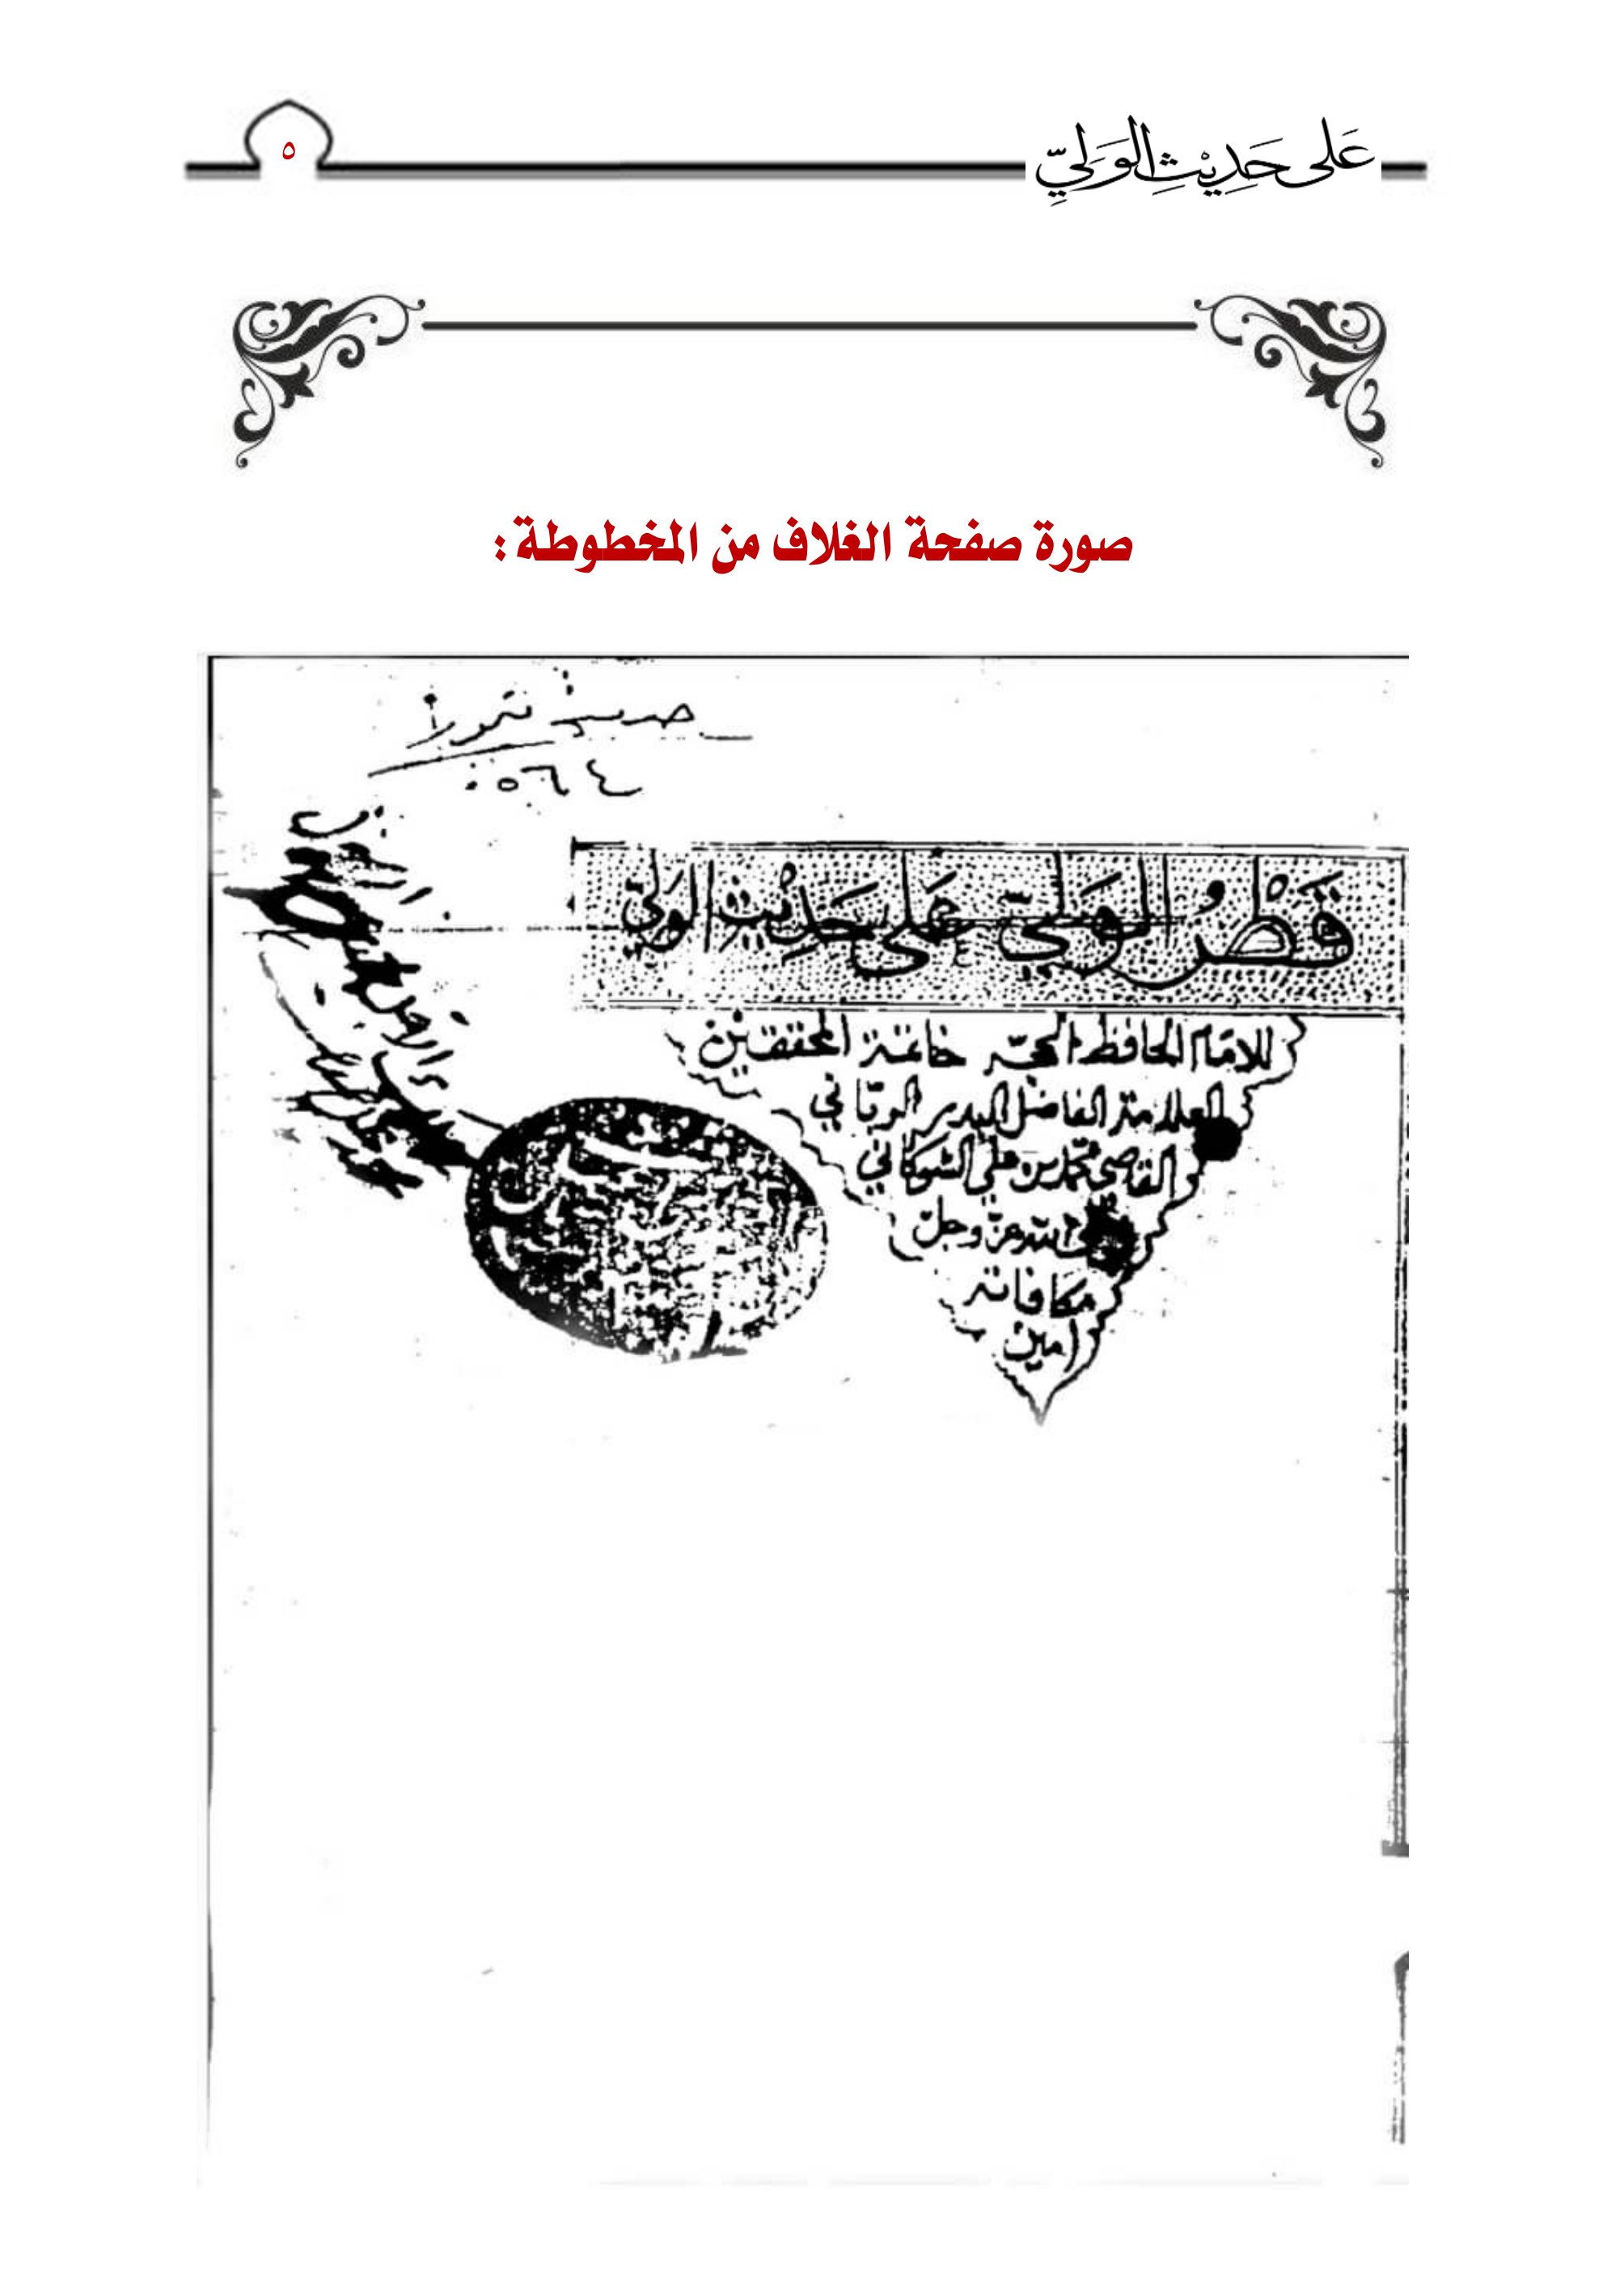 عَلى حَدِيْثِ الوَلِيِّ
٥
صورة صفحة الغلاف من المخطوطة :
حديث تيمور
٥٦٤
قَطْرُ الوَلِيّ عَلى حَدِيْثِ الوَلِيّ
للامام الحافظ الحجّه خاتمة المحققين
العلامة الفاضل البدر الربّاني
القاضي محمّد بن علي الشوكاني
الله عزّ وجلّ
مكافاته
امين